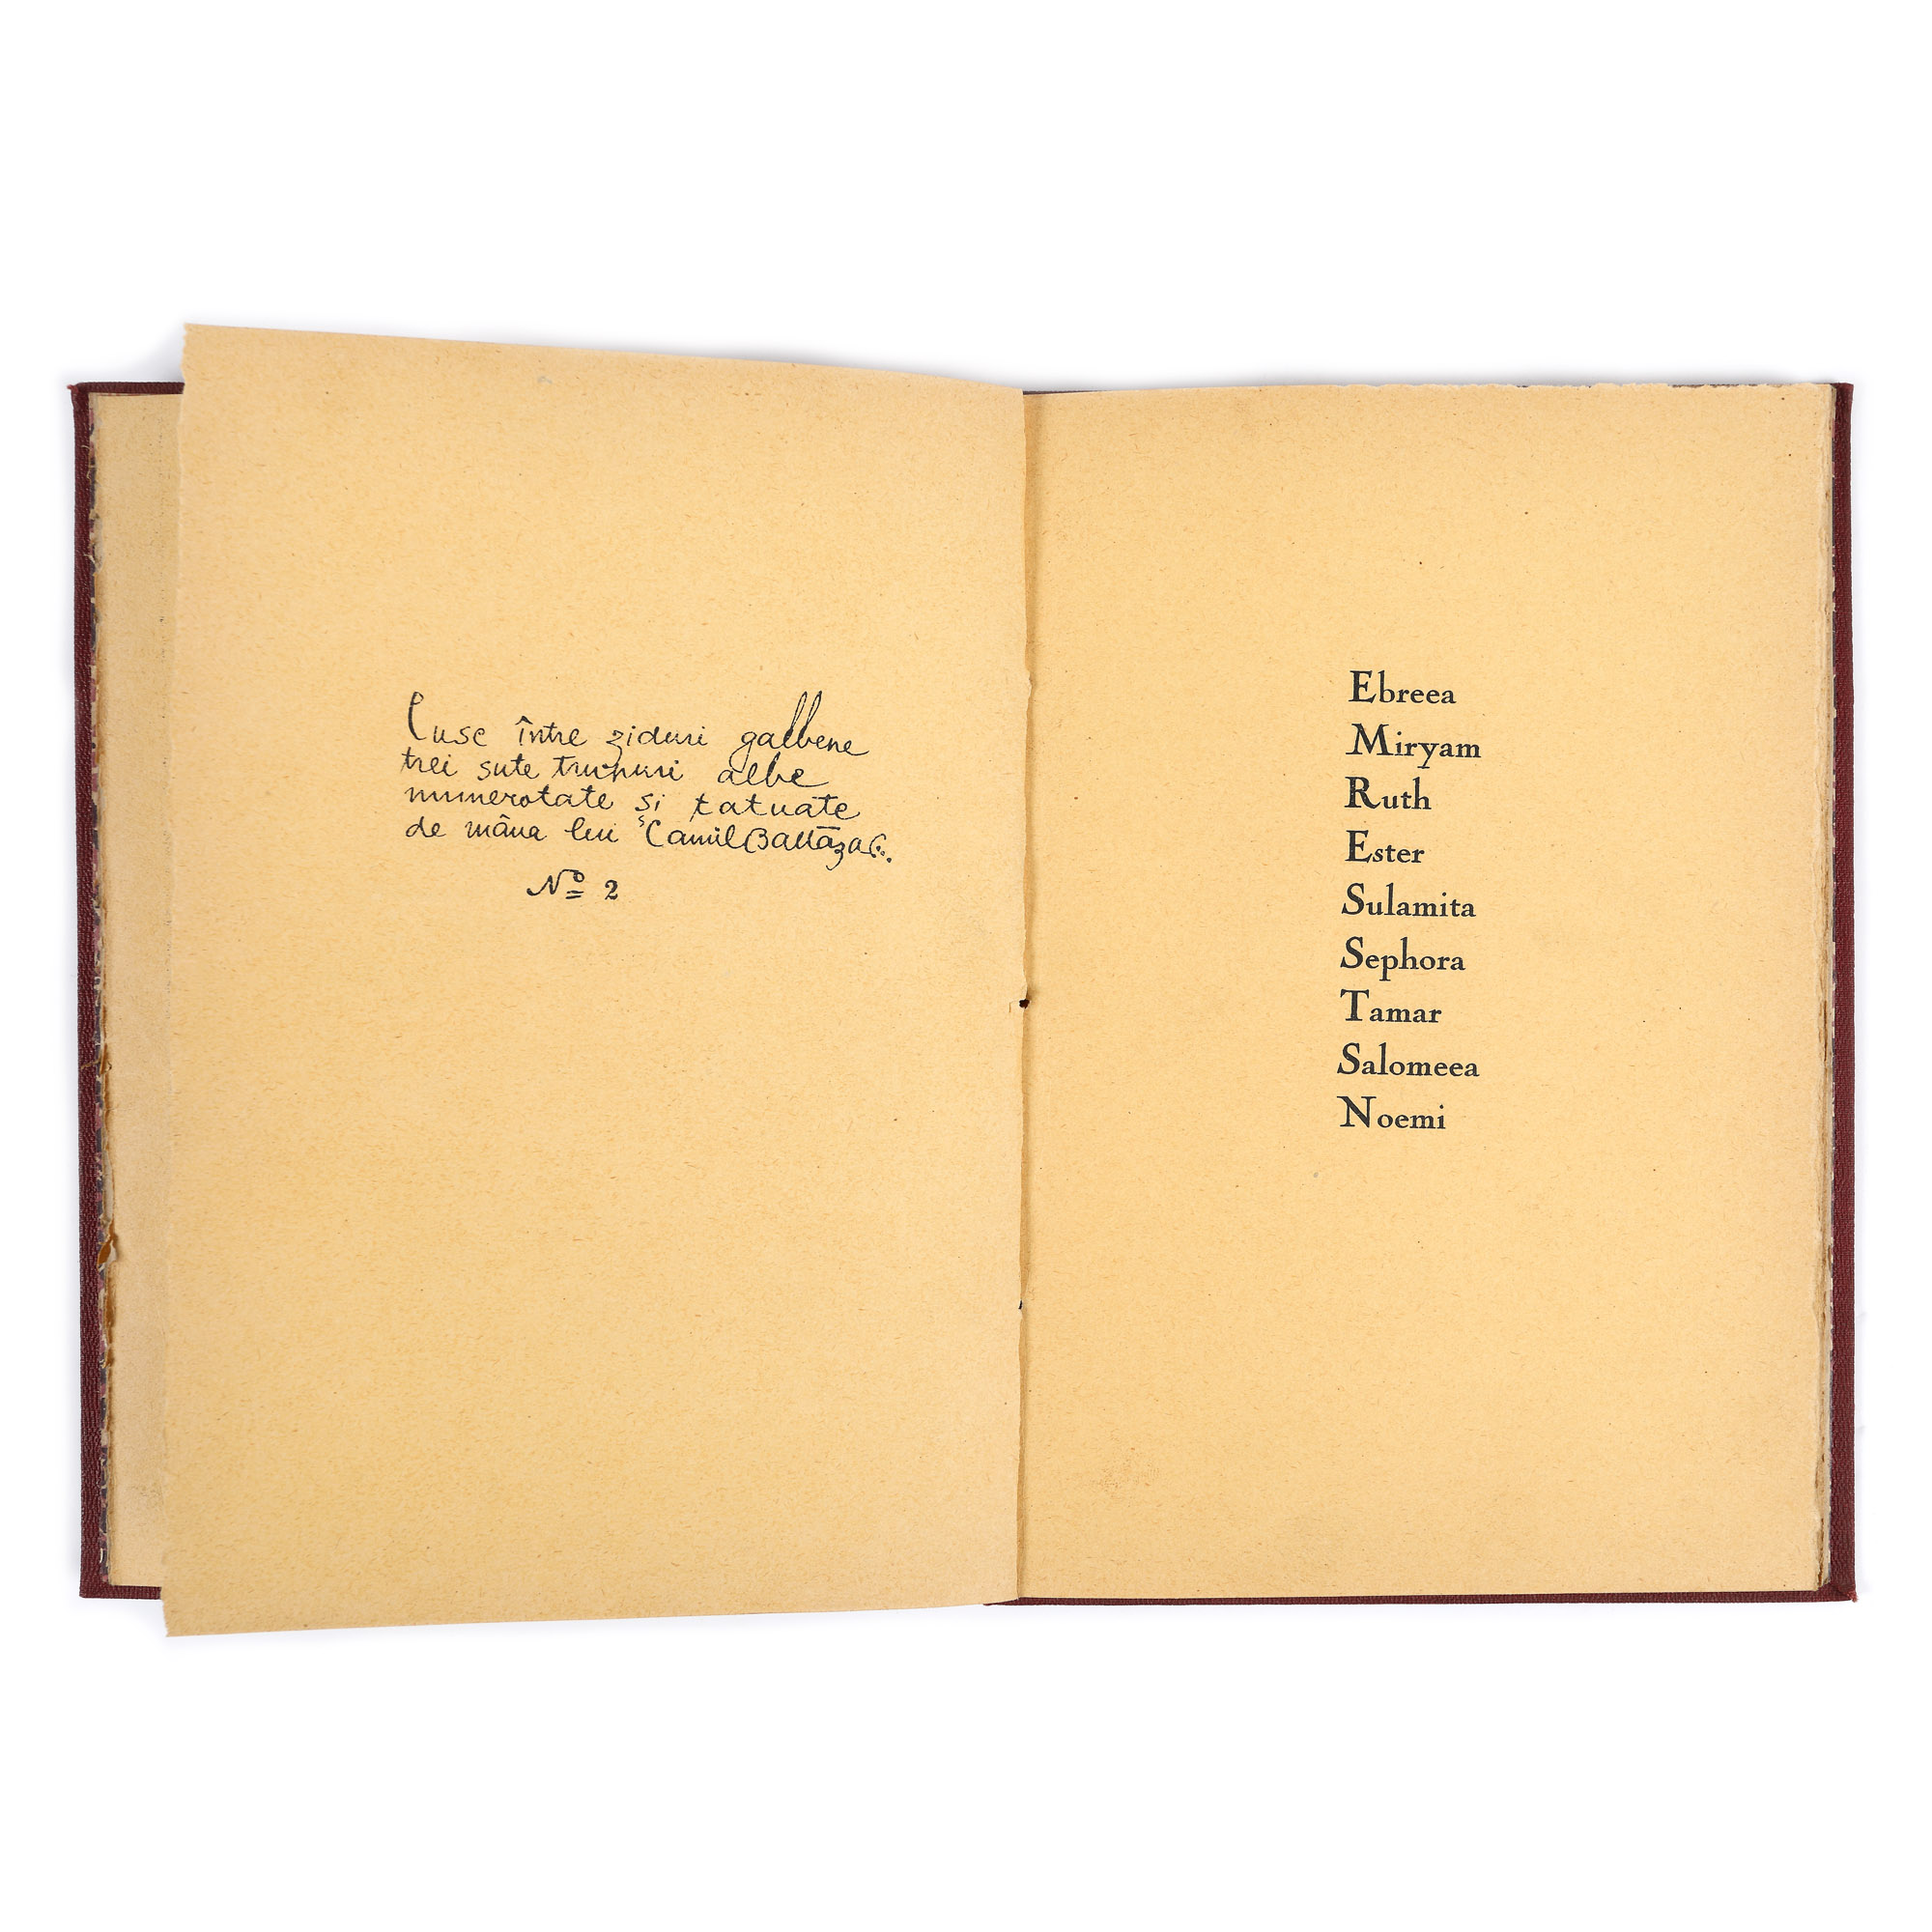 Cusc între ziduri galbene
trei sute trupuri albe
numerotate și tatuate
de mâna lui Camil Baltazar.
Nº 2
Ebreea
Miryam
Ruth
Ester
Sulamita
Sephora
Tamar
Salomeea
Noemi